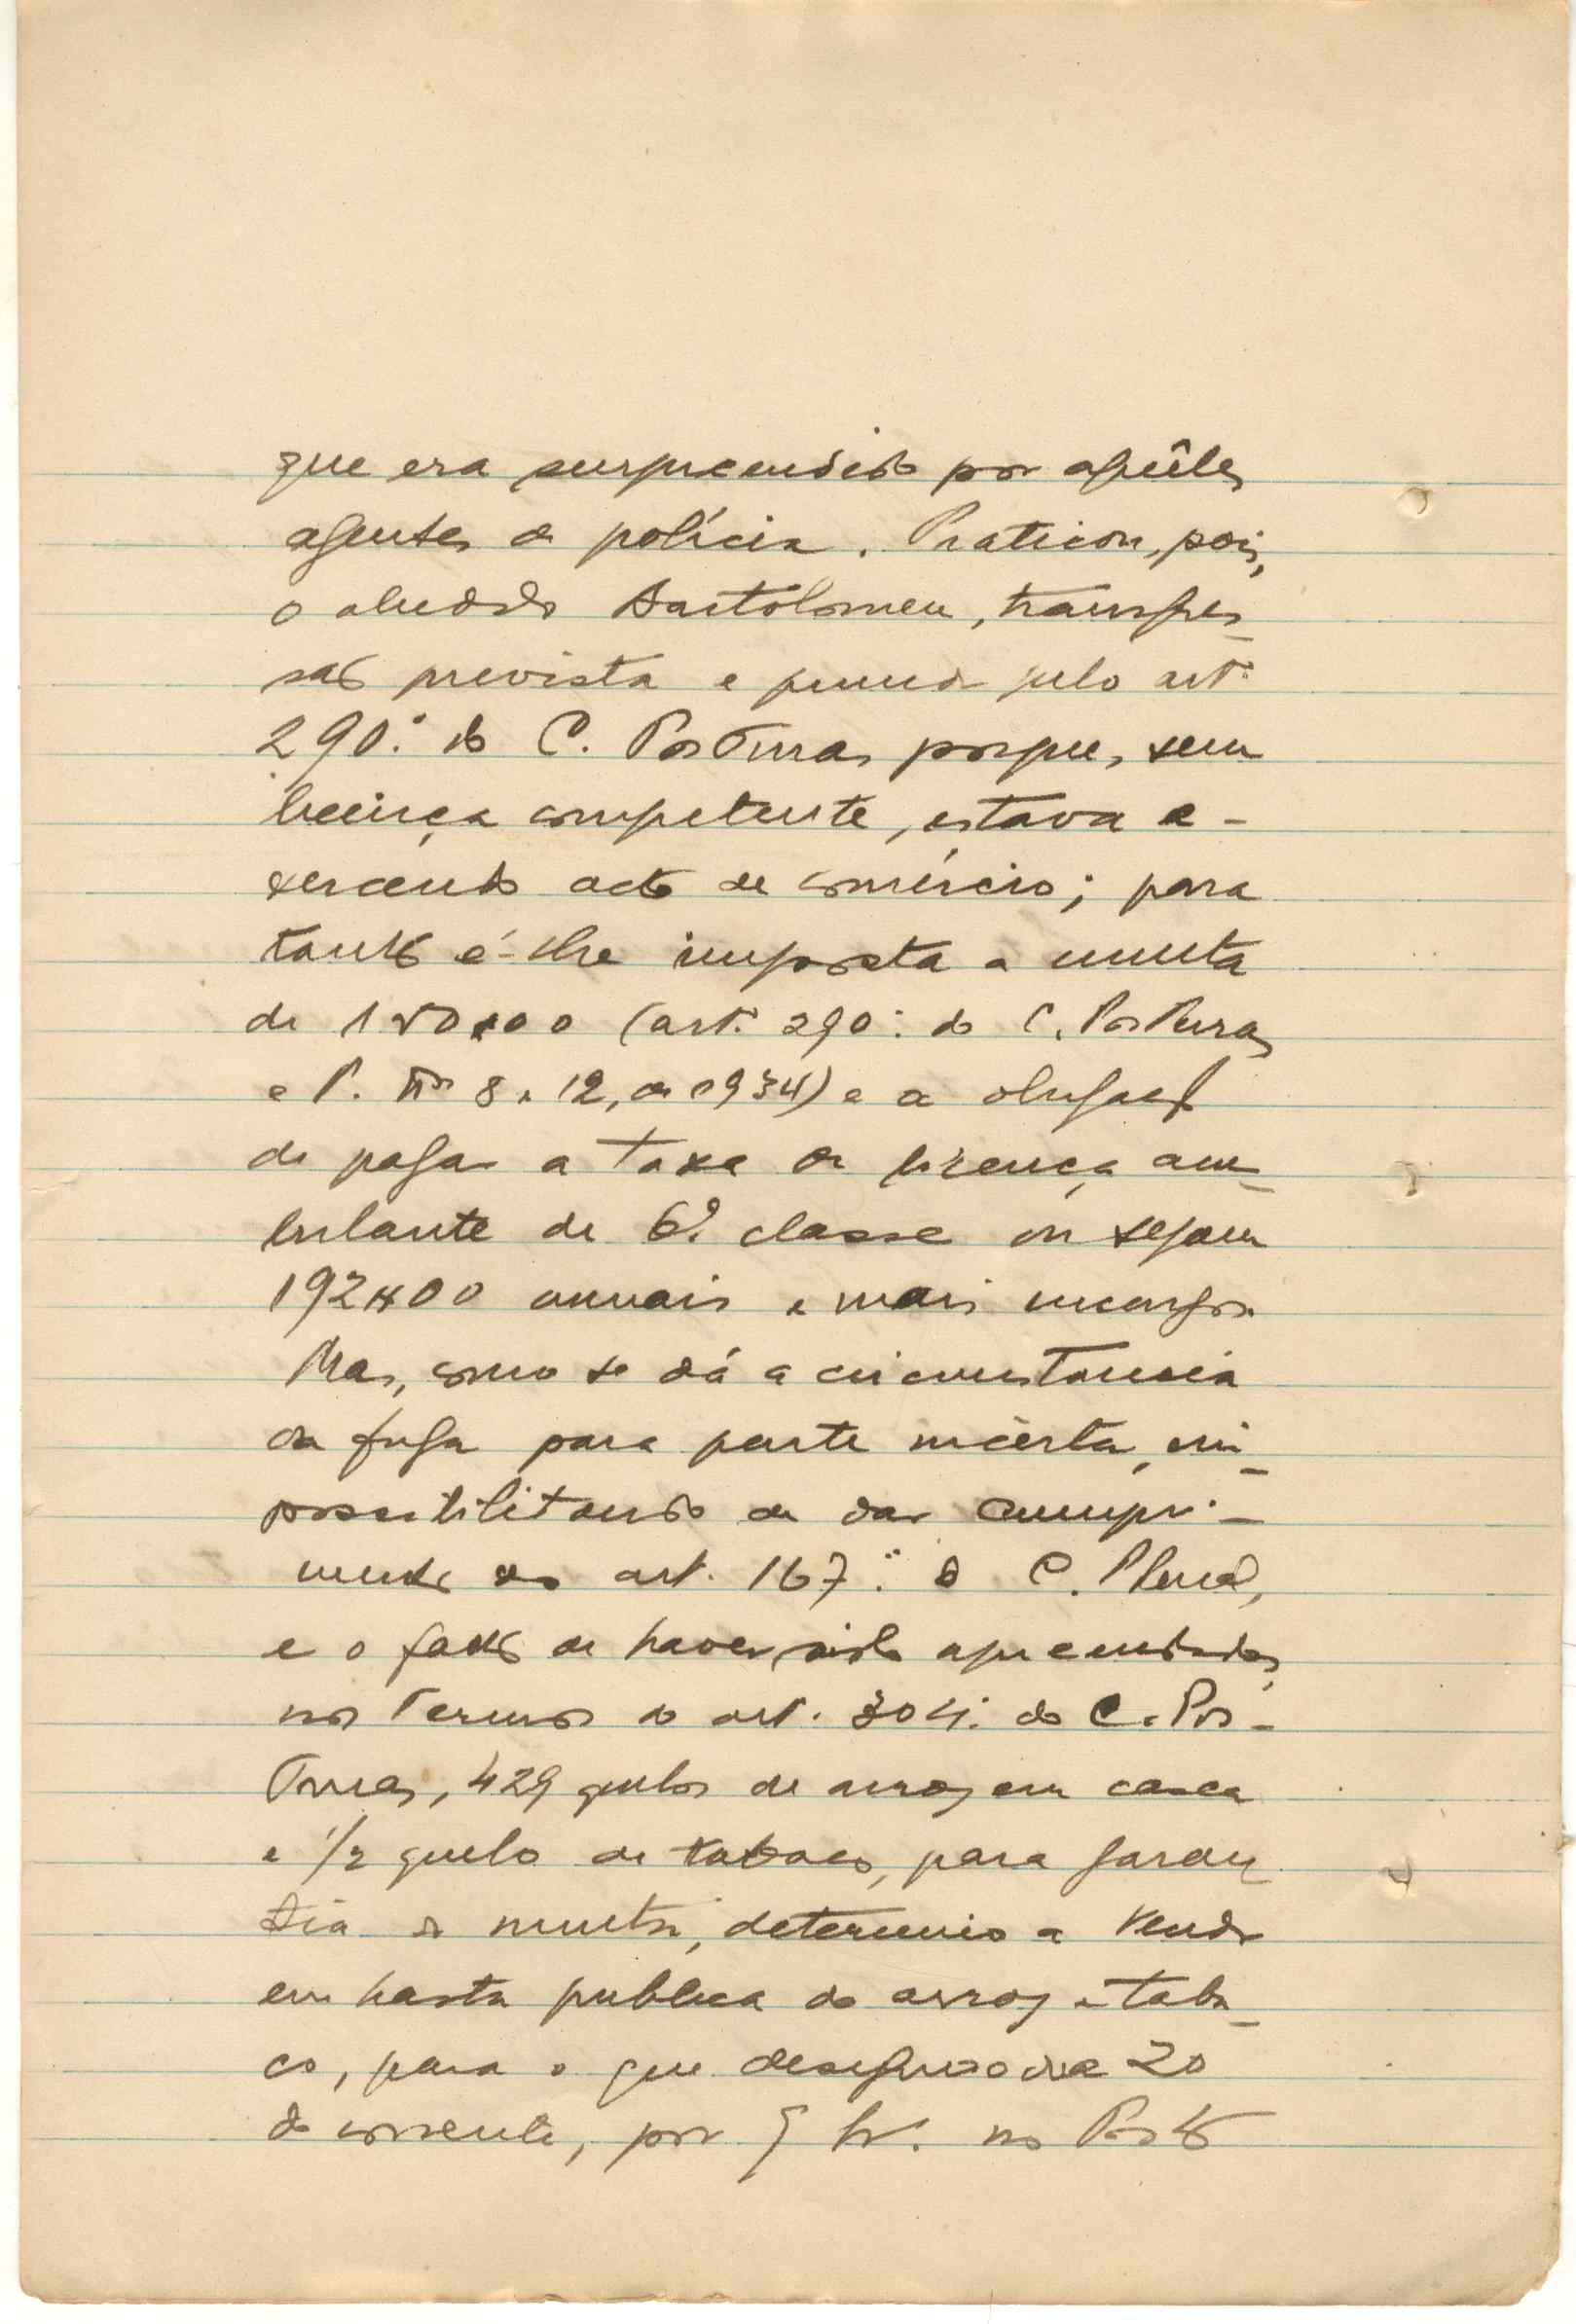 que era surpreendido por aquêles
agentes da polícia. Praticou, pois,
o aludido Bartolomeu, transgres-
são prevista e punida pelo art.
290.º do C. Posturas porque, sem
licença competente, estava e-
xercendo acto de comércio; para
tanto é-lhe imposta a multa
de 150$00 (art. 290.º do C. Posturas
e P. nºs 8 e 12, de 1934) e a obrigação
de pagar a taxa da licença am-
bulante de 6ª classe ou sejam
192$00 anuais e mais encargos.
Mas, como se dá a circunstância
da fuga para parte incerta, im-
possibilitando de dar cumpri-
mento ao art. 167.º do C. Penal,
e o facto de haver sido apreendidos,
nos termos do art. 304.º do C. Pos-
turas, 429 quilos de arroz em casca
e 1/2 quilo de tabaco, para garan-
tia da multa, determino a venda
em hasta publica do arroz e taba-
co, para o que designo o dia 20
do corrente, por 9 hr. no Posto